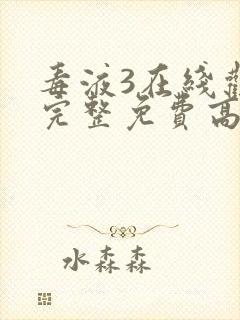 毒液3在线
完整免費高
水森森